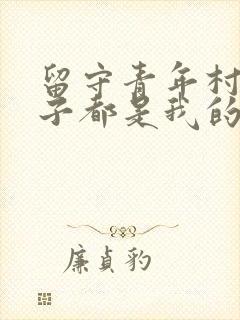 留守青年村
子都是我的
廉貞豹